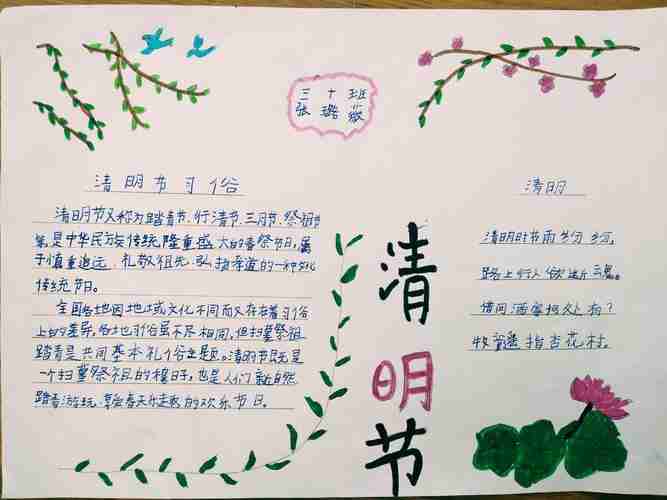 三十班
张璐薇
清明节习俗
清明节又称为踏青节、行清节、三月节、祭祖节
等,是中华民族传统隆重盛大的春祭节日,属
于慎重追远、礼敬祖先、弘扬孝道的一种文化
传统节日。
全国各地因地域文化不同而又存在着习俗
上的差异,各地习俗虽不尽相同,但扫墓祭祖
踏青是共同基本礼俗主题。清明节既是
一个扫墓祭祖的日子,也是人们亲近自然
踏青游玩、享受春天乐趣的欢乐节日。
清明节
清明
清明时节雨纷纷,
路上行人欲断魂。
借问酒家何处有?
牧童遥指杏花村。